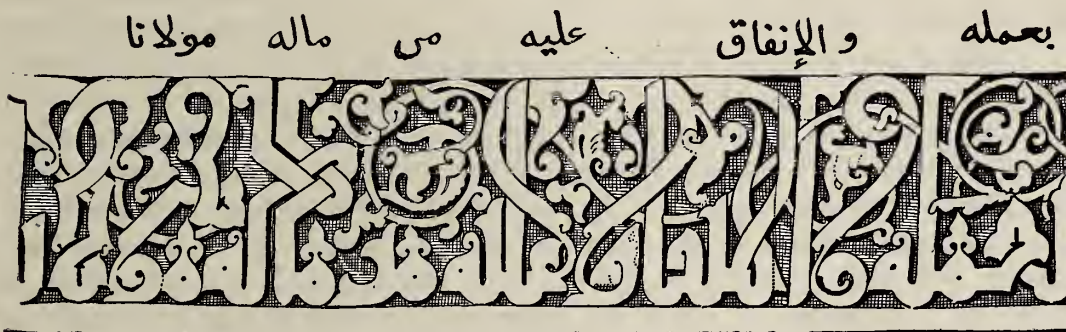 بعمله والإنفاق عليه من ماله مولانا